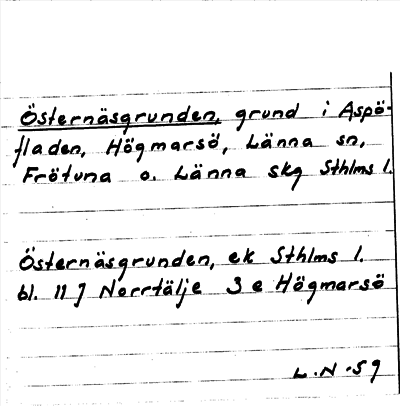 Östernäsgrunden, grund i Aspö-
fladen, Högmarsö, Länna sn,
Frötuna o. Länna skg Sthlms l.
Östernäsgrunden, ek Sthlms l.
bl. 11 J Norrtälje 3 e Högmarsö
L.N -59